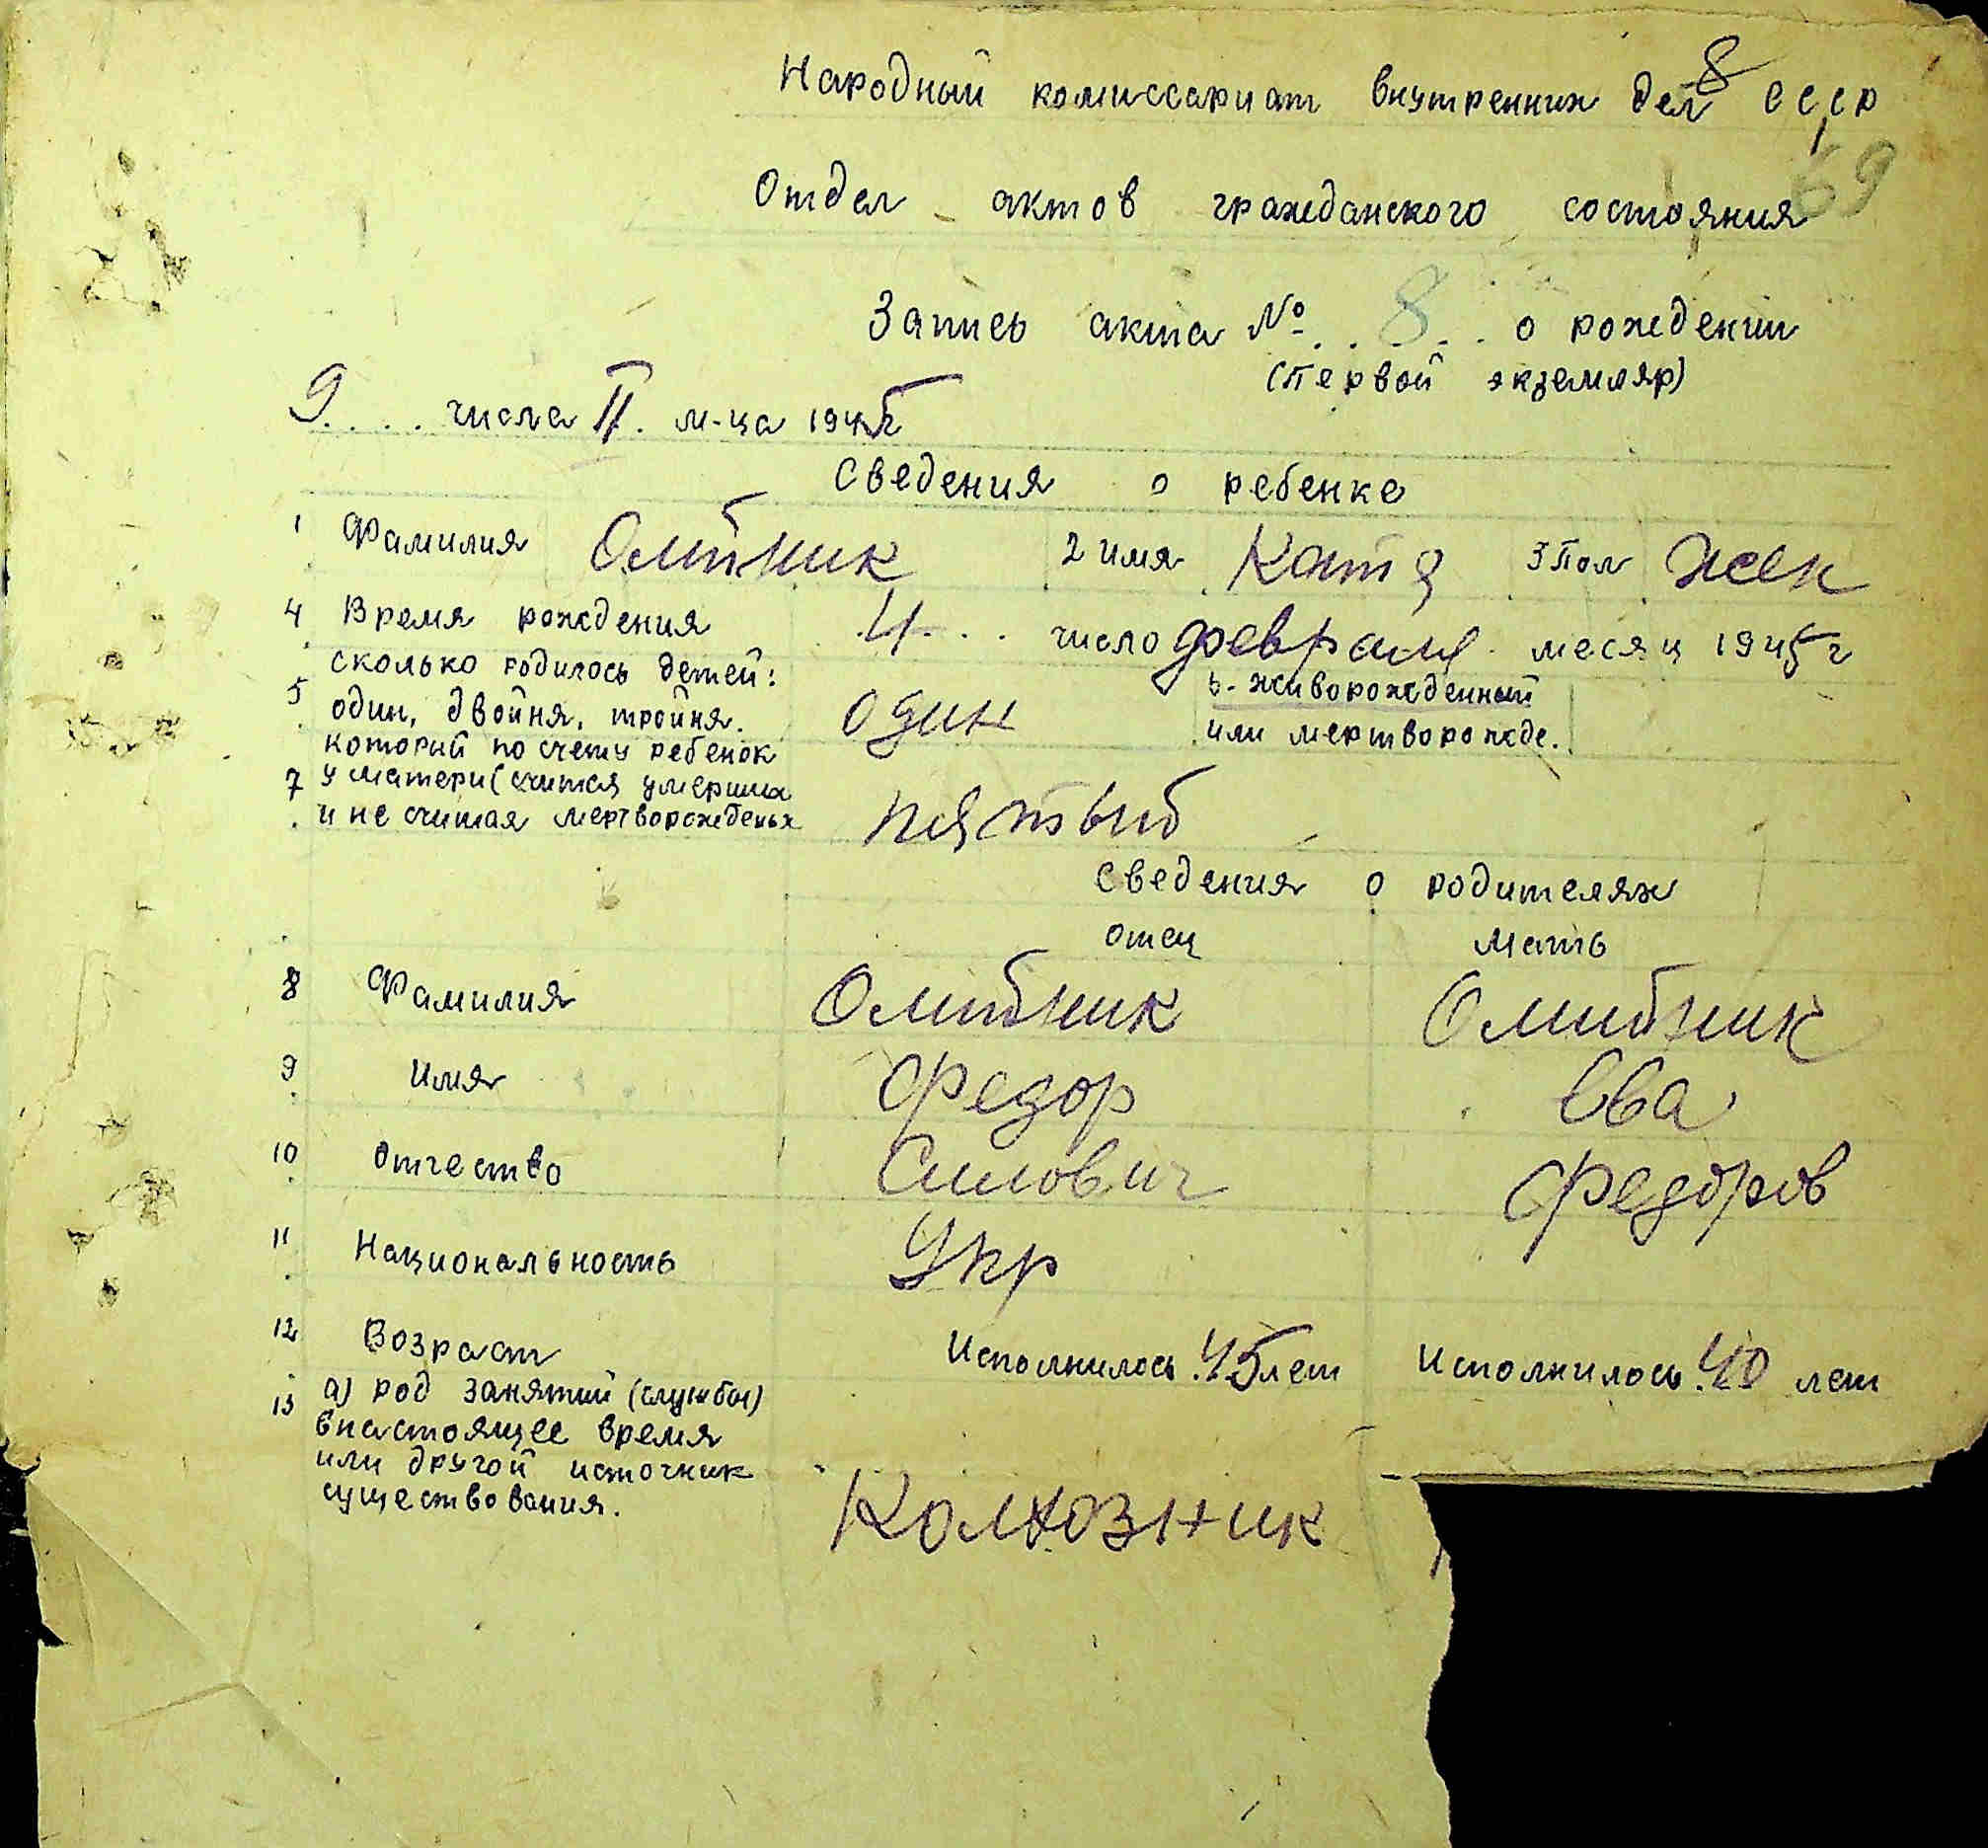 8
Народный комиссариат внутренних дел СССР
69
Отдел актов гражданского состояния
Запись акта № . . 8 . . о рождении
(первой экземляр)
9 . . . . числа II . м-ца 1945
Сведения о ребенке
1 Фамилия Олийник 2 имя Катя 3 Пол жен
4 Время рождения 4 . . . число февраля месяц 1945 г
сколько родилось детей:
5 один, двойня, тройня. один
6. живорожденный
или мертворожде.
который по счету ребенок
7 у матери (считая умерших
и не считая мертворожденых пятый
Сведения о родителях
отец мать
8 Фамилия Олийник Олийник
9 имя Федор Ева
10 отчество Силович Федоров
11 Национальность Укр
12 Возраст Исполнилось 45 лет Исполнилось 40 лет
13 а) род занятий (службы)
в настоящее время
или другой источник
существования.
Колхозник